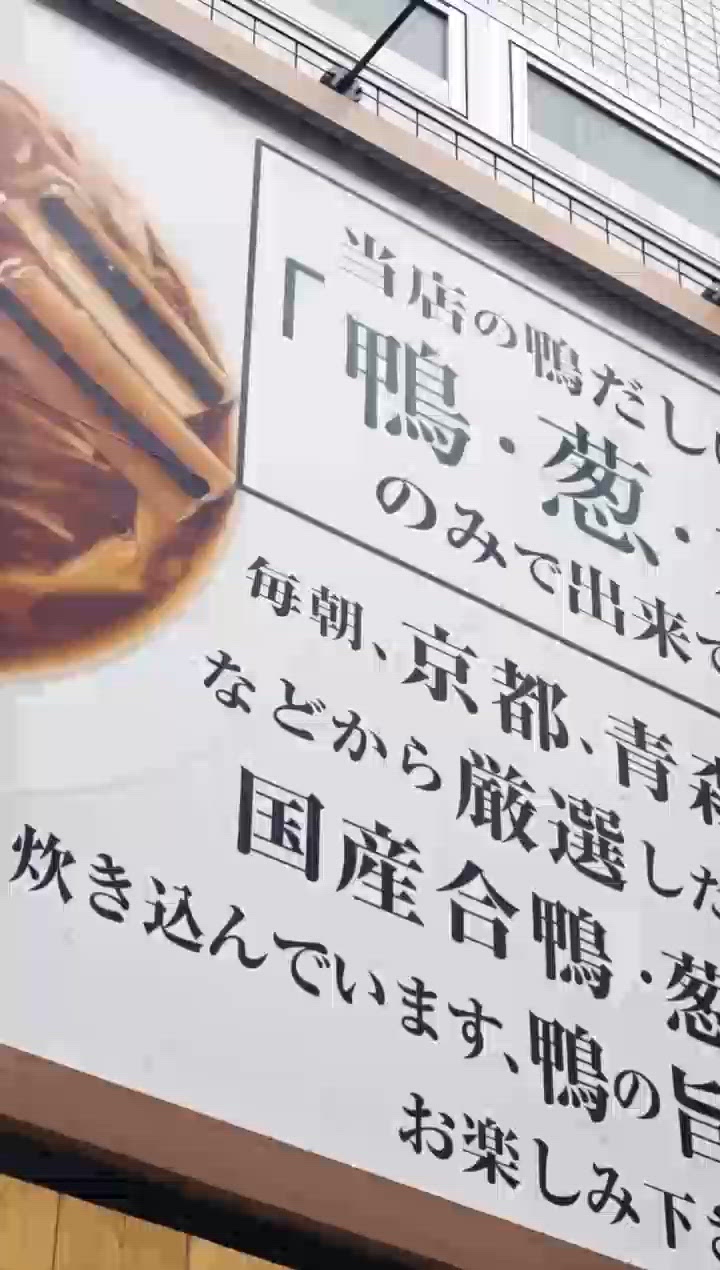 当店の鴨だし
「鴨・葱・
のみで出来て
毎朝、京都、青森
などから厳選した
国産合鴨・葱
炊き込んでいます、鴨の旨
お楽しみ下さ